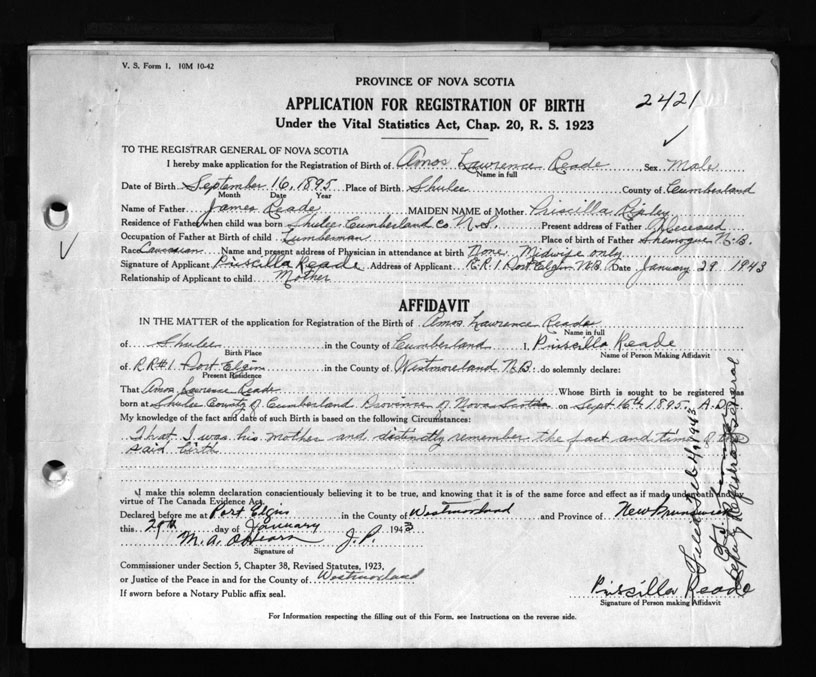 V. S. Form 1. 10M 10-42
PROVINCE OF NOVA SCOTIA
APPLICATION FOR REGISTRATION OF BIRTH
2421
Under the Vital Statistics Act, Chap. 20, R. S. 1923
TO THE REGISTRAR GENERAL OF NOVA SCOTIA
I hereby make application for the Registration of Birth of Amos Lawrence Reade, Sex Male
Name in full
Date of Birth September 16, 1895 Place of Birth Shulee County of Cumberland
Month Date Year
Name of Father James Reade MAIDEN NAME of Mother Priscilla Ripley
Residence of Father when child was born Shulee Cumberland Co. N.S. Present address of Father Deceased
Occupation of Father at Birth of child Lumberman Place of birth of Father Shemogue N.B.
Race Caucasian Name and present address of Physician in attendance at birth None. Midwife only
Signature of Applicant Priscilla Reade Address of Applicant R.R. 1 Port Elgin N.B. Date January 29 1943
Relationship of Applicant to child Mother
AFFIDAVIT
IN THE MATTER of the application for Registration of the Birth of Amos Lawrence Reade
Name in full
of Shulee in the County of Cumberland I, Priscilla Reade
Birth Place Name of Person Making Affidavit
of R.R#1 Port Elgin in the County of Westmoreland N.B. do solemnly declare:
Present Residence
That Amos Lawrence Reade Whose Birth is sought to be registered was
born at Shulee County of Cumberland Province of Nova Scotia on Sept 16th 1895 A.D.
My knowledge of the fact and date of such Birth is based on the following Circumstances:
That I was his mother and distinctly remember the fact and time of the
said birth
I make this solemn declaration conscientiously believing it to be true, and knowing that it is of the same force and effect as if made under oath and by
virtue of The Canada Evidence Act.
Declared before me at Port Elgin in the County of Westmorland and Province of New Brunswick
this 29th day of January 1943
M. A. O'Hearn J.P.
Signature of
Commissioner under Section 5, Chapter 38, Revised Statutes, 1923,
or Justice of the Peace in and for the County of Westmorland
If sworn before a Notary Public affix seal.
Priscilla Reade
Signature of Person making Affidavit
For Information respecting the filling out of this Form, see Instructions on the reverse side.
Filed Feb 4, 1943
Deputy Registrar General